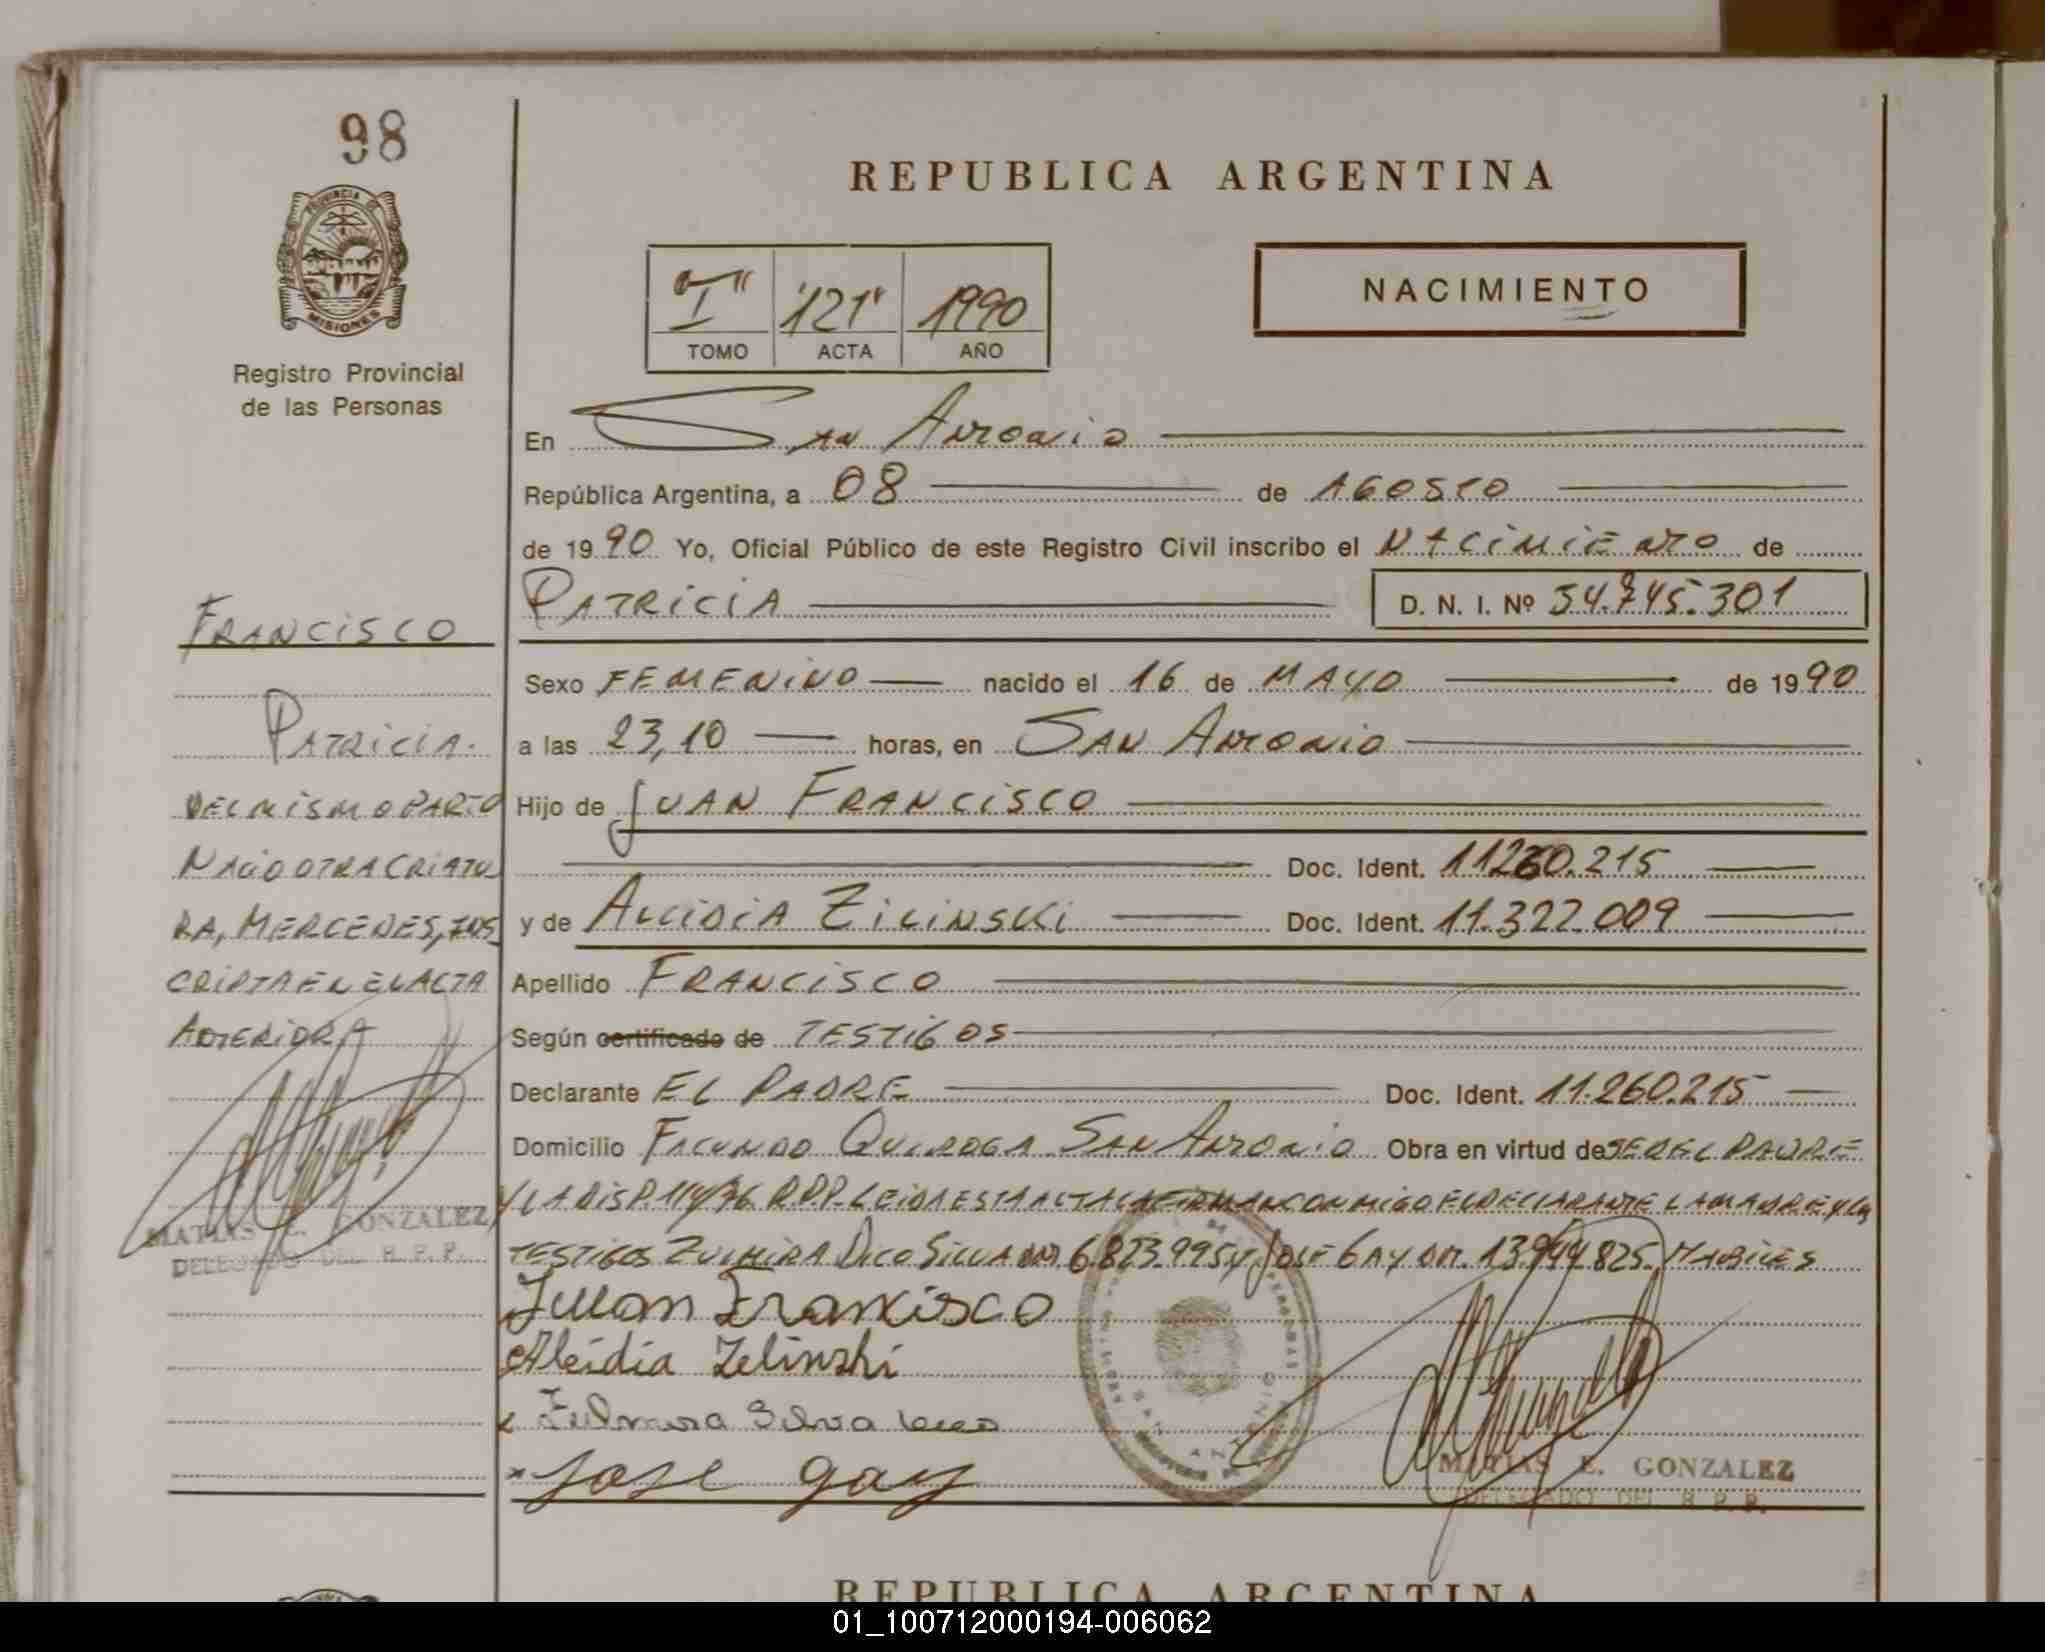 98
REPUBLICA ARGENTINA
PROVINCIA DE
MISIONES
Registro Provincial
de las Personas
"I" "121" 1990
TOMO ACTA AÑO
NACIMIENTO
En San Antonio
República Argentina, a 08 de AGOSTO
de 1990 Yo, Oficial Público de este Registro Civil inscribo el NACIMIENTO de
PATRICIA D. N. I. Nº 34.745.301
FRANCISCO
PATRICIA.
DEL MISMO PARTO
NACIO OTRA CRIATU
RA, MERCEDES, INS
CRIPTA EN EL ACTA
ANTERIOR
MATIAS E. GONZALEZ
DELEGADO DEL R. P. P.
Sexo FEMENINO nacido el 16 de MAYO de 1990
a las 23,10 horas, en SAN ANTONIO
Hijo de JUAN FRANCISCO
Doc. Ident. 11260.215
y de ALCIDIA ZILINSKI Doc. Ident. 11.322.009
Apellido FRANCISCO
Según certificado de TESTIGOS
Declarante EL PADRE Doc. Ident. 11.260.215
Domicilio FACUNDO QUIROGA SAN ANTONIO Obra en virtud de SER EL PADRE
Y LA DISP. 114/76 R.P.P. LEIDA ESTA ACTA LA FIRMAN CONMIGO EL DECLARANTE LA MADRE Y LOS
TESTIGOS ZULMIRA DICO SILVA DNI 6.823.995 Y JOSE GAY DNI. 13.944.825. HABILES
Juan Francisco
Alcidia Zelinski
x Silva
x jose gay
MATIAS E. GONZALEZ
DELEGADO DEL R. P. P.
REPUBLICA ARGENTINA
01_100712000194-006062